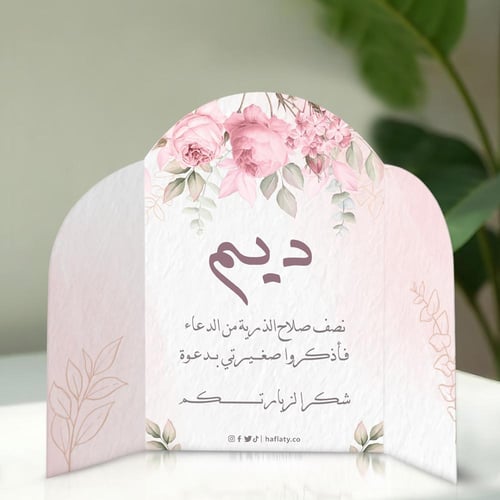 ديم
نصف صلاح الذرية من الدعاء
فأذكروا صغيرتي بدعوة
شكرا لزيارتكم
haflaty.co